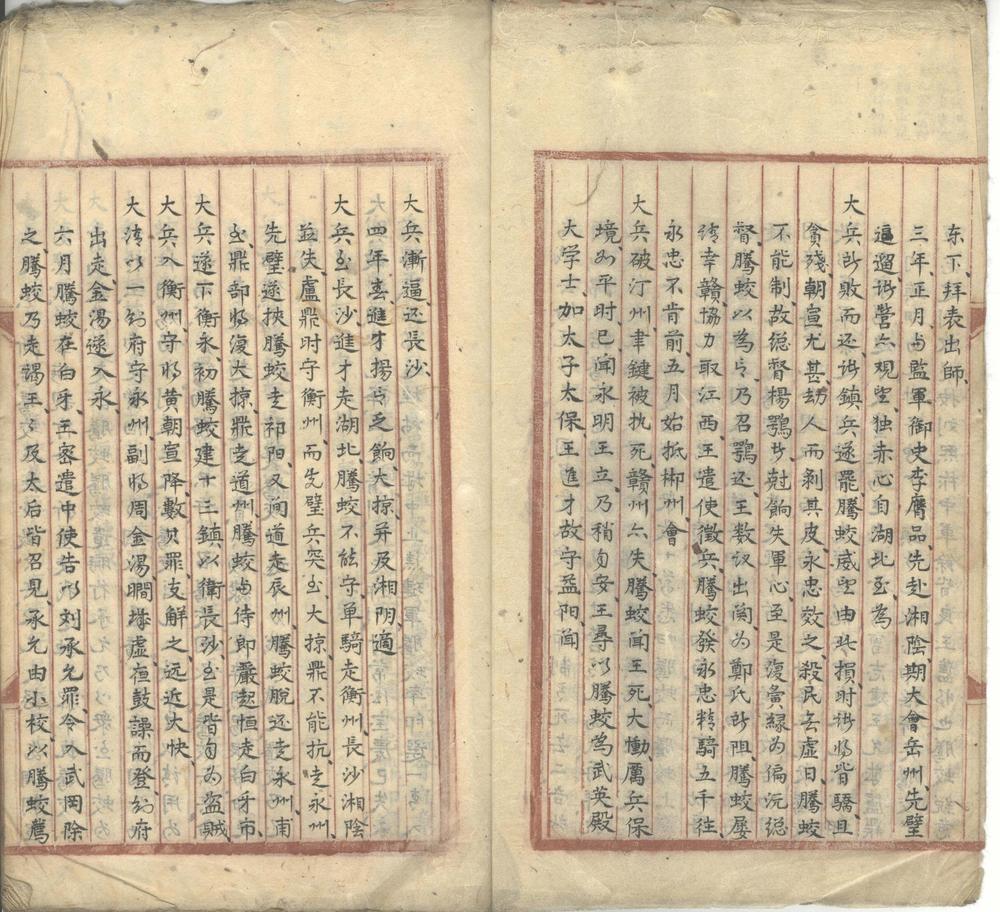 东下、拜表出師、
三年、正月与監軍御史李膺品先赴湘陰期大會岳州、先璧
逼遛、诸营亦观望、独赤心自湖北至、為
大兵所敗而还、诸鎮兵遂罷、騰蛟威望由此損、时诸将皆驕且
貪殘、朝宣尤甚、劫人而剥其皮、永忠效之、殺民無虚日、騰蛟
不能制、故總督楊鶚於尅餉失軍心、至是復夤緣為偏沅總
督、騰蛟以為言、乃召鶚还、王数议出闽、为鄭氏所阻、騰蛟屡
请幸贛、協力取江西、王遣使徵兵、騰蛟發永忠精騎五千往、
永忠不肯前、五月始抵郴州、會
大兵破汀州、聿鍵被执死、贛州亦失、騰蛟闻王死、大慟、厲兵保
境、如平时、已闻永明王立、乃稍自安、王尋以騰蛟為武英殿
大学士、加太子太保、王進才故守益阳、闻
大兵漸逼、还長沙、
四年春、進才揚言乏餉、大掠、并及湘阴、適
大兵至長沙、進才走湖北、騰蛟不能守、单騎走衡州、長沙湘陰
並失、盧鼎时守衡州、而先璧兵突至、大掠、鼎不能抗、走永州、
先璧遂挾騰蛟走祁阳、又间道走辰州、騰蛟脱还、走永州、甫
至、鼎部将復大掠、鼎走道州、騰蛟与侍郎嚴起恒走白牙市、
大兵遂下衡永、初騰蛟建十三鎮、以衛長沙、至是皆自为盗賊、
大兵入衡州、守将黄朝宣降、數其罪、支解之、远近大快、
大清以一知府守永州、副将周金湯瞷城虚、夜鼓譟而登、知府
出走、金湯遂入永、
六月、騰蛟在白牙、王密遣中使告以刘承允罪、令入武岡除
之、騰蛟乃走謁王、王及太后皆召見、承允由小校、以騰蛟薦